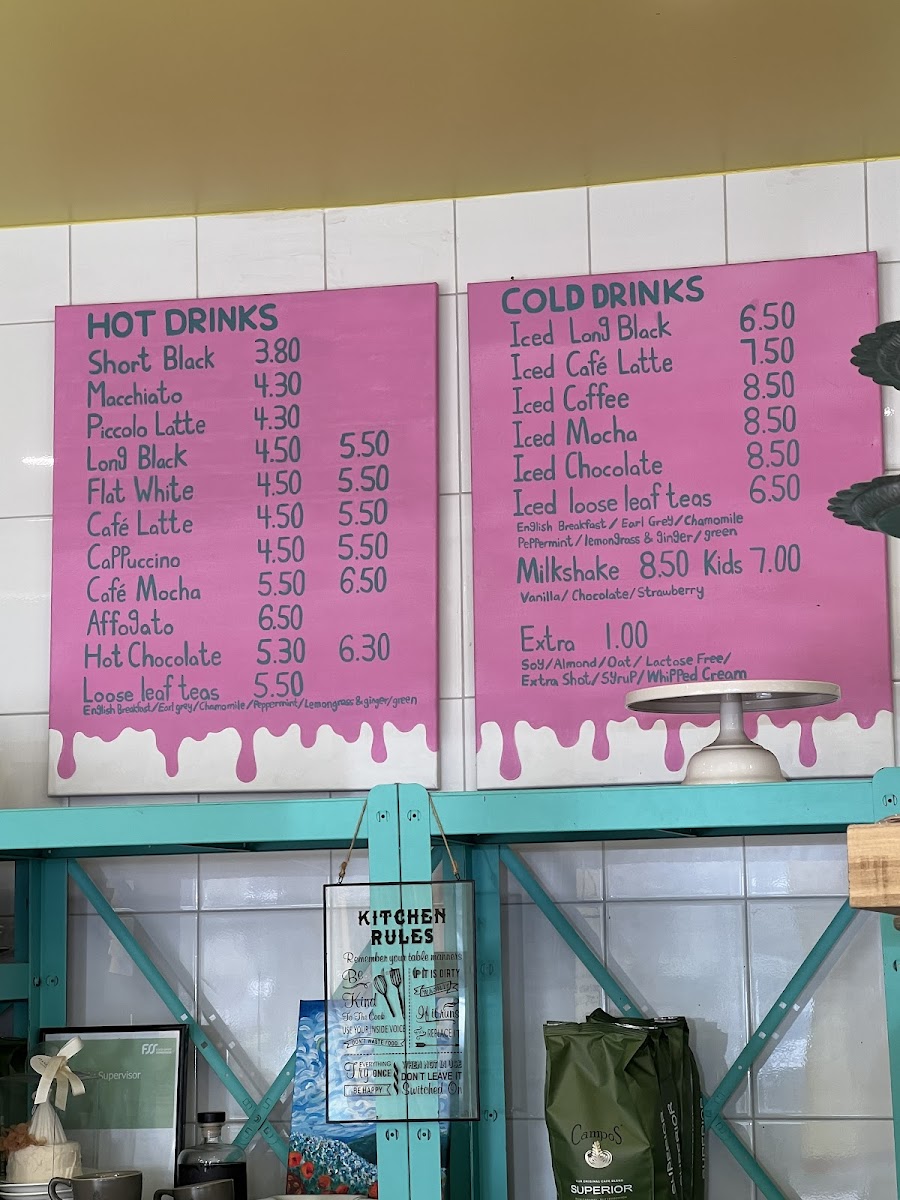 HOT DRINKS
Short Black 3.80
Macchiato 4.30
Piccolo Latte 4.30
Long Black 4.50 5.50
Flat White 4.50 5.50
Café Latte 4.50 5.50
Cappuccino 4.50 5.50
Café Mocha 5.50 6.50
Affogato 6.50
Hot Chocolate 5.30 6.30
Loose leaf teas 5.50
English Breakfast/Earl grey/Chamomile/Peppermint/Lemongrass & ginger/green
COLD DRINKS
Iced Long Black 6.50
Iced Café Latte 7.50
Iced Coffee 8.50
Iced Mocha 8.50
Iced Chocolate 8.50
Iced loose leaf teas 6.50
English Breakfast/ Earl Grey/Chamomile
Peppermint/lemongrass & ginger/green
Milkshake 8.50 Kids 7.00
Vanilla/Chocolate/Strawberry
Extra 1.00
Soy/Almond/Oat/ Lactose Free/
Extra Shot/Syrup/Whipped Cream
KITCHEN
RULES
Remember your table manners
Be
Kind
To The Cook
USE YOUR INSIDE VOICE
DON'T WASTE FOOD
Try
EVERYTHING
ONCE
BE HAPPY
IF IT IS DIRTY
REPLACE IT
WHEN NOT IN USE
DON'T LEAVE IT
Switched On
FSS
Supervisor
Campos
SUPERIOR
SUPERIOR